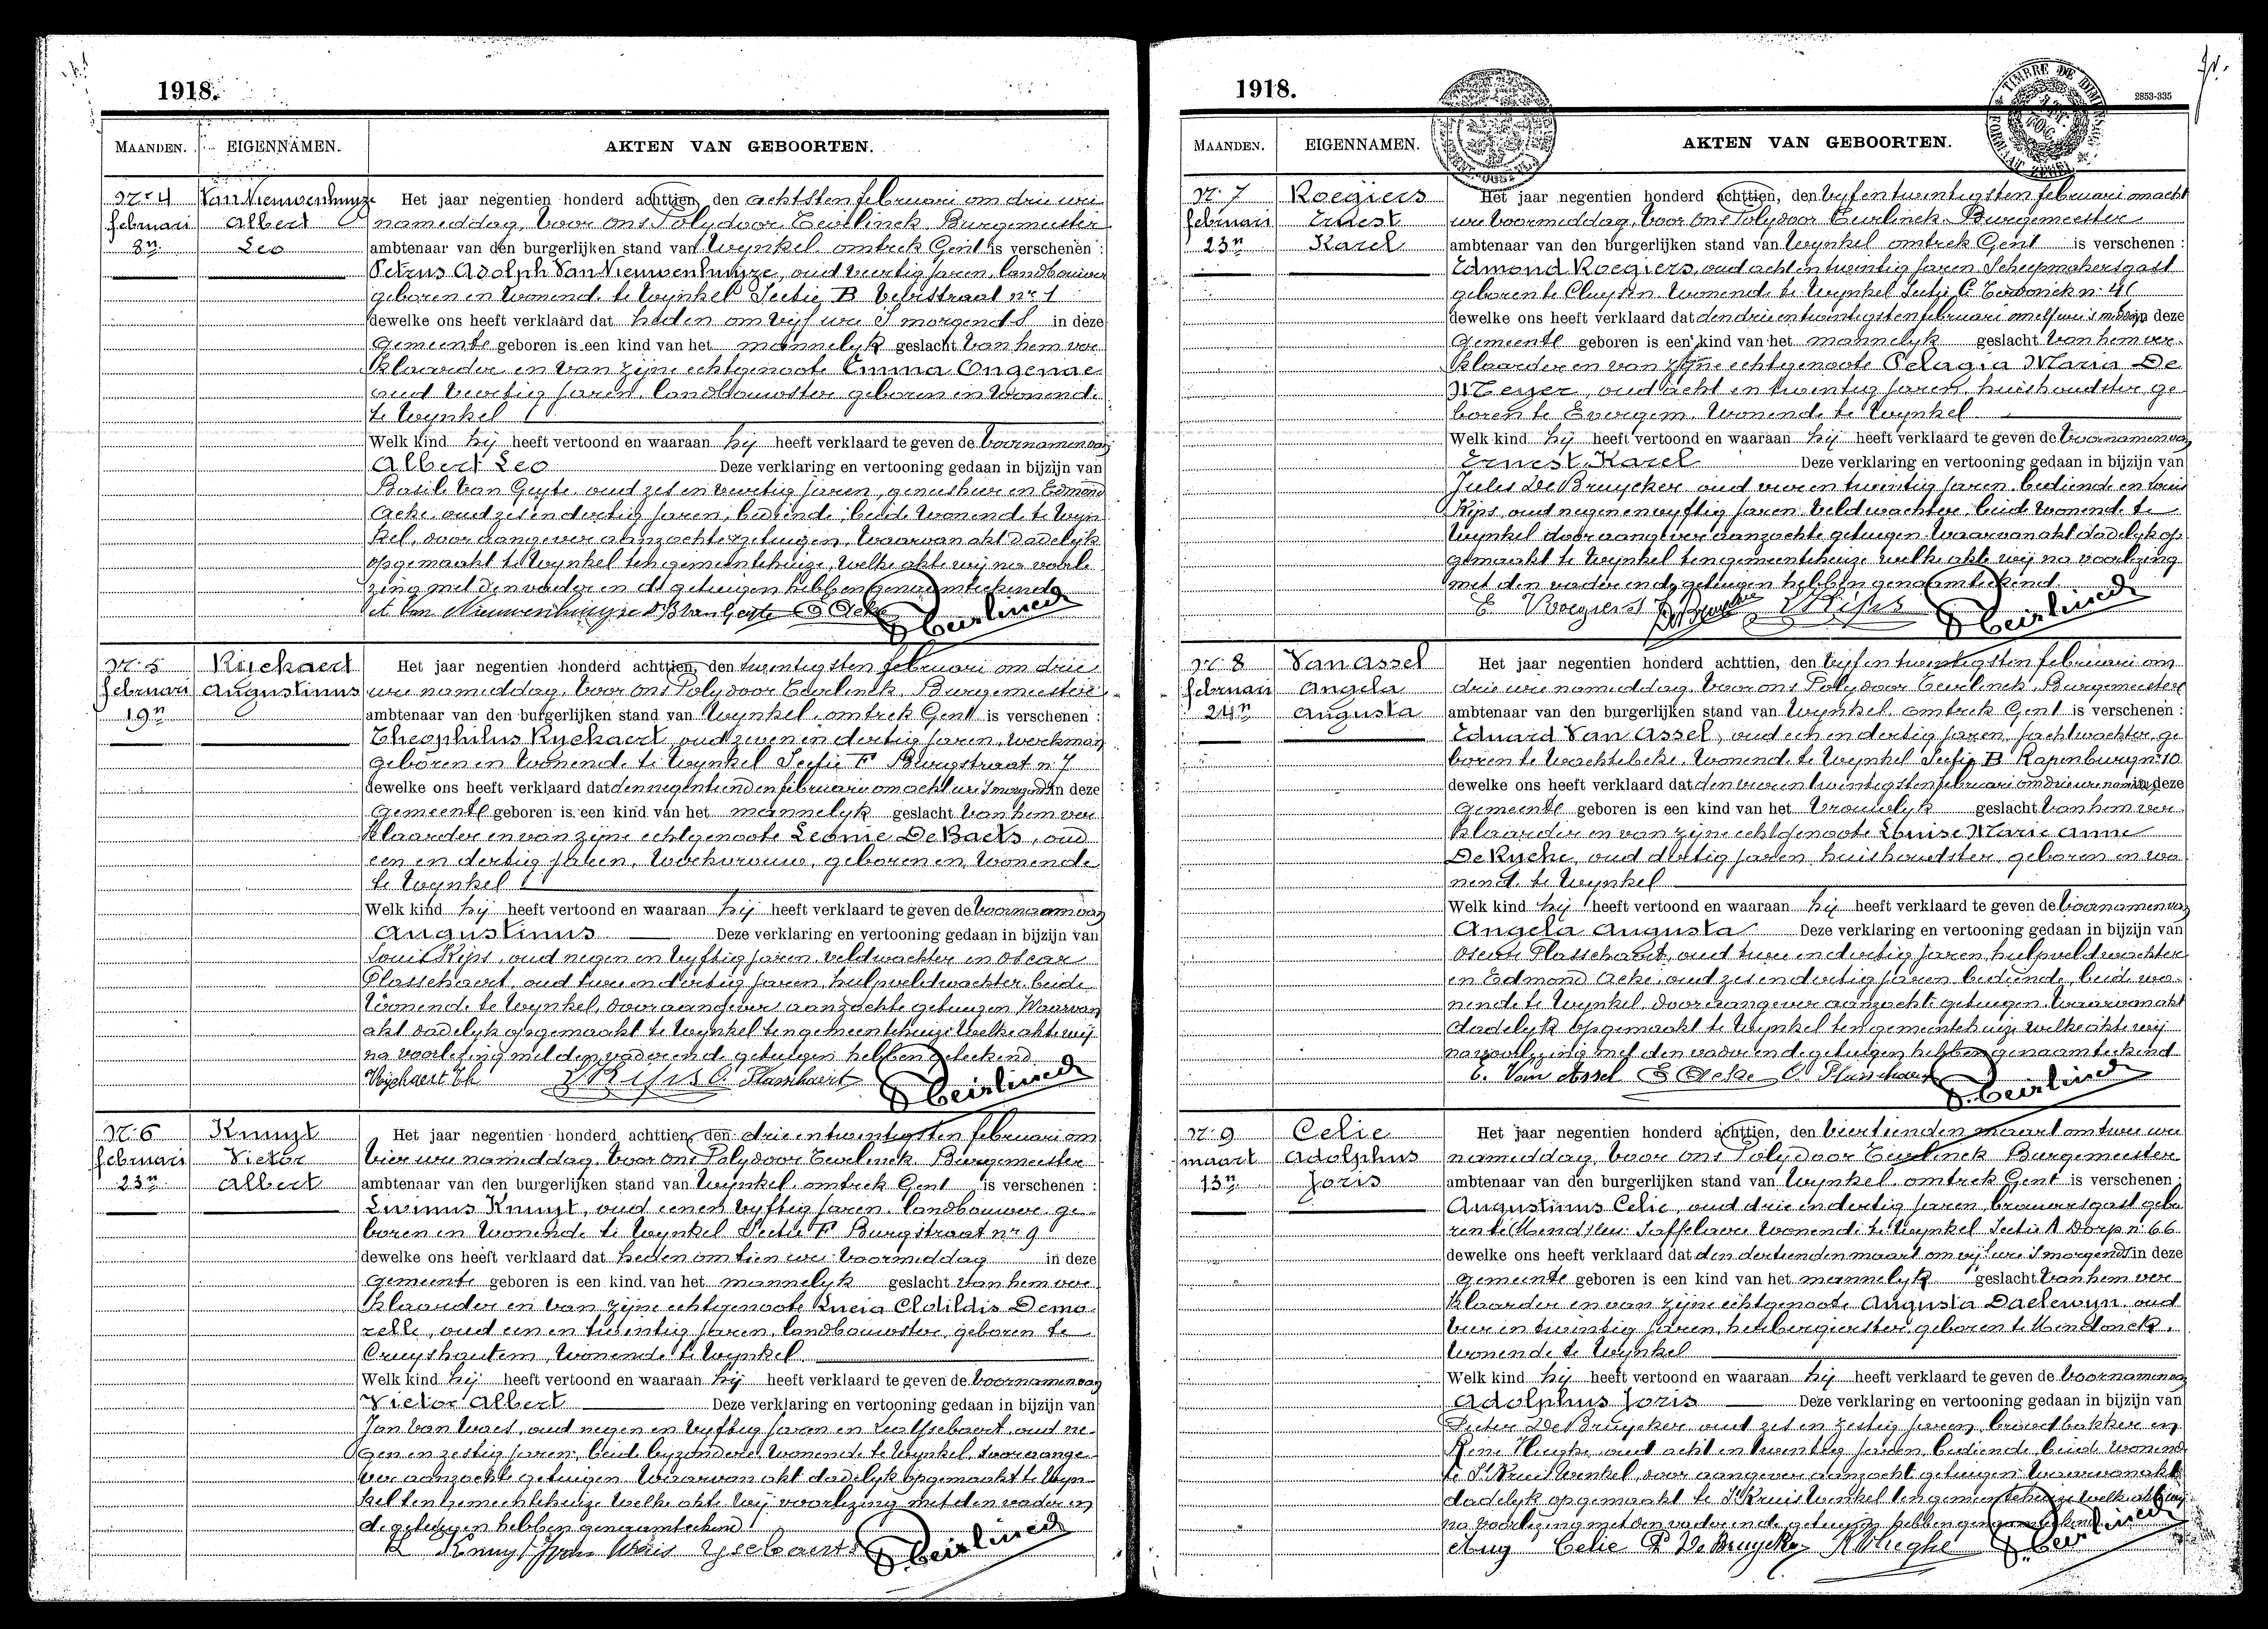 1918.
MAANDEN. EIGENNAMEN. AKTEN VAN GEBOORTEN.
Nr 4 Van Nieuwenhuyze Het jaar negentien honderd achttien, den achtsten februari om drie ure
februari Albert namiddag, voor ons Polydoor Teirlinck, Burgemeester
8n Leo ambtenaar van den burgerlijken stand van Wynkel omtrek Gent is verschenen :
Petrus Adolph Van Nieuwenhuyze, oud veertig jaren, landbouwer
geboren en wonende te Wynkel Sectie B nr 1
dewelke ons heeft verklaard dat heden om vijf ure 's morgends in deze
gemeente geboren is een kind van het mannelyk geslacht van hem ver
klaarder en van zijne echtgenoote Emma Ongenae
oud veertig jaren, landbouwster geboren en wonende
te Wynkel
Welk kind hij heeft vertoond en waaraan hij heeft verklaard te geven de voornamen van
Albert Leo Deze verklaring en vertooning gedaan in bijzijn van
Basile Van Geyte, oud zes en veertig jaren, geneesheer en Edmond
Acke, oud zes en dertig jaren, bediende, beide wonende te Wyn
kel, door aangever aanzochte getuigen, Waarvan akt dadelyk
opgemaakt te Wynkel ten gemeentehuize, welke akte wij na voorle
zing met den vader en de getuigen hebben genaamteekend
A. Van Nieuwenhuyze Dr B Van Geyte E Acke P. Teirlinck
Nr 5 Ryckaert Het jaar negentien honderd achttien, den twintigsten februari om drie
februari Augustinus ure namiddag, voor ons Polydoor Teirlinck, Burgemeester
19n ambtenaar van den burgerlijken stand van Wynkel, omtrek Gent is verschenen :
Theophilus Ryckaert, oud zeven en dertig jaren, werkman
geboren en wonende te Wynkel Sectie F Burgstraat nr 7
dewelke ons heeft verklaard dat den negentienden februari om acht ure 's morgends in deze
gemeente geboren is een kind van het mannelyk geslacht van hem ver
klaarder en van zijne echtgenoote Leonie De Baets, oud
een en dertig jaren, werkvrouw, geboren en wonende
te Wynkel
Welk kind hij heeft vertoond en waaraan hij heeft verklaard te geven de voornaam van
Augustinus Deze verklaring en vertooning gedaan in bijzijn van
Louis Kips, oud negen en vyftig jaren, veldwachter en Oscar
Plasschaert, oud twee en dertig jaren, hulpveldwachter, beide
wonende te Wynkel, door aangever aanzochte getuigen Waarvan
akt dadelyk opgemaakt te Wynkel ten gemeentehuize welke akte wij
na voorlezing met den vader en de getuigen hebben geteekend
Ryckaert Th L Kips O Plasschaert P. Teirlinck
Nr 6 Knuyt Het jaar negentien honderd achttien, den drie en twintigsten februari om
februari Victor vier ure namiddag, voor ons Polydoor Teirlinck, Burgemeester
23n Albert ambtenaar van den burgerlijken stand van Wynkel, omtrek Gent is verschenen :
Livinus Knuyt, oud een en vyftig jaren, landbouwer, ge
boren en wonende te Wynkel Sectie F Burgstraat nr 9
dewelke ons heeft verklaard dat heden om tien ure voormiddag in deze
gemeente geboren is een kind van het mannelyk geslacht van hem ver
klaarder en van zijne echtgenoote Lucia Clotildis Demo
relle, oud een en twintig jaren, landbouwster, geboren te
Cruyshautem, wonende te Wynkel
Welk kind hij heeft vertoond en waaraan hij heeft verklaard te geven de voornamen van
Victor Albert Deze verklaring en vertooning gedaan in bijzijn van
Jan Van Waes, oud negen en vyftig jaren en Leo Ysebaert, oud ne
gen en zestig jaren, beide byzondere, wonende te Wynkel, door aange
ver aanzochte getuigen. Waarvan akt dadelyk opgemaakt te Wyn
kel ten gemeentehuize welke akte wij voorlezing met den vader en
de getuigen hebben genaamteekend
L Knuyt Jvan Waes Ysebaert P. Teirlinck
1918.
TIMBRE DE DIMENSION
2853-335
MAANDEN. EIGENNAMEN. AKTEN VAN GEBOORTEN.
Nr 7 Roegiers Het jaar negentien honderd achttien, den vyf en twintigsten februari om acht
februari Ernest ure voormiddag, voor ons Polydoor Teirlinck, Burgemeester
23n Karel ambtenaar van den burgerlijken stand van Wynkel omtrek Gent is verschenen :
Edmond Roegiers, oud acht en twintig jaren Scheepmakersgast
geboren te Cluysen wonende te Wynkel Sectie C nr 41
dewelke ons heeft verklaard dat den drie en twintigsten februari om elf ure 's middags in deze
gemeente geboren is een kind van het mannelyk geslacht van hem ver
klaarder en van zijne echtgenoote Pelagia Maria De
Meyer, oud acht en twintig jaren, huishoudster, ge
boren te Evergem, wonende te Wynkel
Welk kind hij heeft vertoond en waaraan hij heeft verklaard te geven de voornamen van
Ernest Karel Deze verklaring en vertooning gedaan in bijzijn van
Jules De Bruycker oud vier en twintig jaren, bediende en Louis
Kips, oud negen en vyftig jaren veldwachter, beide wonende te
Wynkel door aangever aanzochte getuigen. Waarvan akt dadelyk op
gemaakt te Wynkel ten gemeentehuize welke akte wij na voorlezing
met den vader en de getuigen hebben genaamteekend.
E Roegiers J De Bruycker L Kips P. Teirlinck
Nr 8 Van Assel Het jaar negentien honderd achttien, den vyf en twintigsten februari om
februari Angela drie ure namiddag, voor ons Polydoor Teirlinck, Burgemeester
24n Augusta ambtenaar van den burgerlijken stand van Wynkel omtrek Gent is verschenen :
Eduard Van Assel, oud een en dertig jaren, jachtwachter, ge
boren te Wachtebeke, wonende te Wynkel Sectie B Rapenburg nr 10
dewelke ons heeft verklaard dat den vier en twintigsten februari om drie ure namiddag in deze
gemeente geboren is een kind van het vrouwelyk geslacht van hem ver
klaarder en van zijne echtgenoote Louise Marie Anne
De Rycke, oud dertig jaren huishoudster, geboren en wo
nende te Wynkel
Welk kind hij heeft vertoond en waaraan hij heeft verklaard te geven de voornamen van
Angela Augusta Deze verklaring en vertooning gedaan in bijzijn van
Oscar Plasschaert, oud twee en dertig jaren, hulpveldwachter
en Edmond Acke, oud zes en dertig jaren bediende, beide wo
nende te Wynkel, door aangever aanzochte getuigen. Waarvan akt
dadelyk opgemaakt te Wynkel ten gemeentehuize welke akte wij
na voorlezing met den vader en de getuigen hebben genaamteekend
E. Van Assel E Acke O. Plasschaert P. Teirlinck
Nr 9 Celie Het jaar negentien honderd achttien, den veertienden maart om twee ure
maart Adolphus namiddag, voor ons Polydoor Teirlinck Burgemeester
13n Joris ambtenaar van den burgerlijken stand van Wynkel omtrek Gent is verschenen :
Augustinus Celie, oud drie en dertig jaren, brouwersgast gebo
ren te Saffelaere wonende te Wynkel Sectie A Dorp nr 66
dewelke ons heeft verklaard dat den dertienden maart om vijf ure 's morgends in deze
gemeente geboren is een kind van het mannelyk geslacht van hem ver
klaarder en van zijne echtgenoote Augusta Daelewyn, oud
vier en twintig jaren, herbergierster, geboren te Mendonck,
wonende te Wynkel
Welk kind hij heeft vertoond en waaraan hij heeft verklaard te geven de voornamen van
Adolphus Joris Deze verklaring en vertooning gedaan in bijzijn van
Pieter De Bruycker, oud zes en zestig jaren, broodbakker en
René Vlieghe oud acht en twintig jaren, bediende beide wonende
te St Kruis Wenkel, door aangever aanzochte getuigen. Waarvan akt
dadelyk opgemaakt te St Kruis Wenkel ten gemeentehuize welke akte wij
na voorlezing met den vader en de getuigen hebben genaamteekend
Aug Celie P De Bruycker R Vlieghe P. Teirlinck